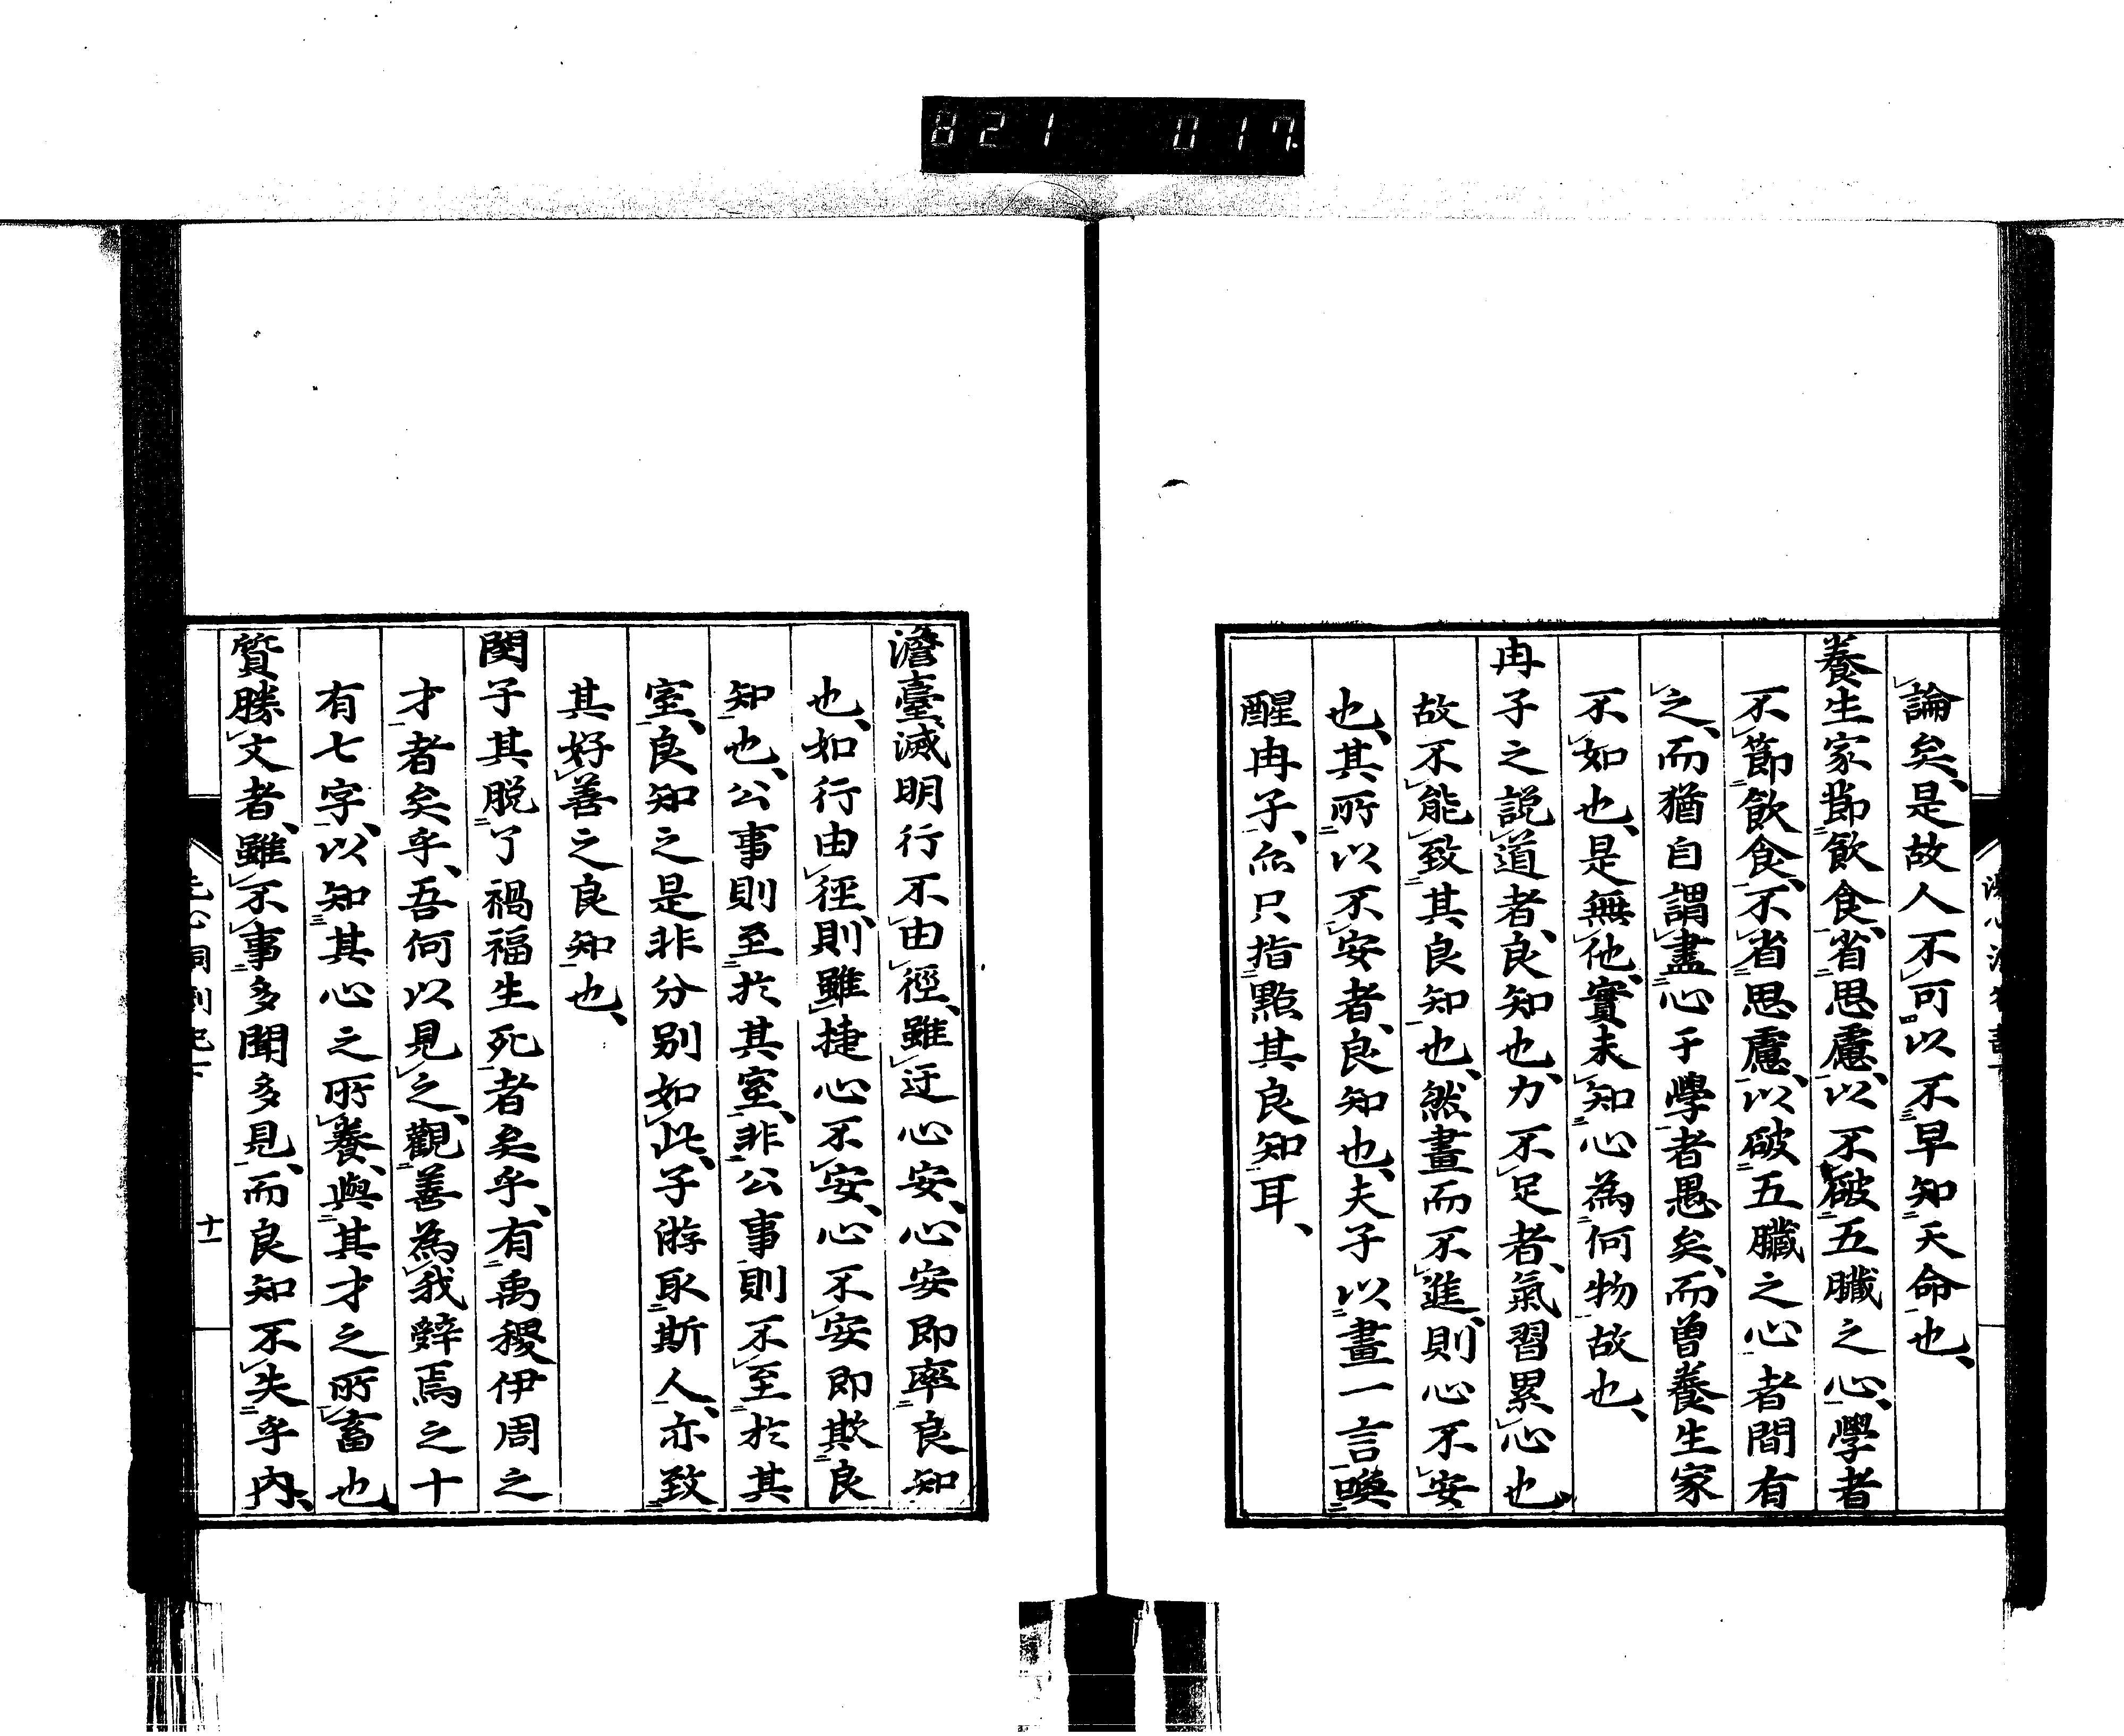 821 017
論矣、是故人不可以不早知天命也、
養生家節飲食、省思慮、以不破五臟之心、學者
不節飲食、不省思慮、以破五臟之心者間有
之、而猶自謂盡心于學者愚矣、而曾養生家
不如也、是無他、實未知心為何物故也、
冉子之説道者、良知也、力不足者、氣習累心也、
故不能致其良知也、然畫而不進、則心不安
也、其所以不安者、良知也、夫子以畫一言喚
醒冉子、亦只指點其良知耳、
澹臺滅明行不由徑、雖迂心安、心安即率良知
也、如行由徑、則雖捷心不安、心不安即欺良
知也、公事則至於其室、非公事則不至於其
室、良知之是非分別如此、子游取斯人、亦致
其好善之良知也、
閔子其脱了禍福生死者矣乎、有禹稷伊周之
才者矣乎、吾何以見之、觀善為我辤焉之十
有七字、以知其心之所養、與其才之所畜也、
質勝文者、雖不事多聞多見、而良知不失乎内、
十一